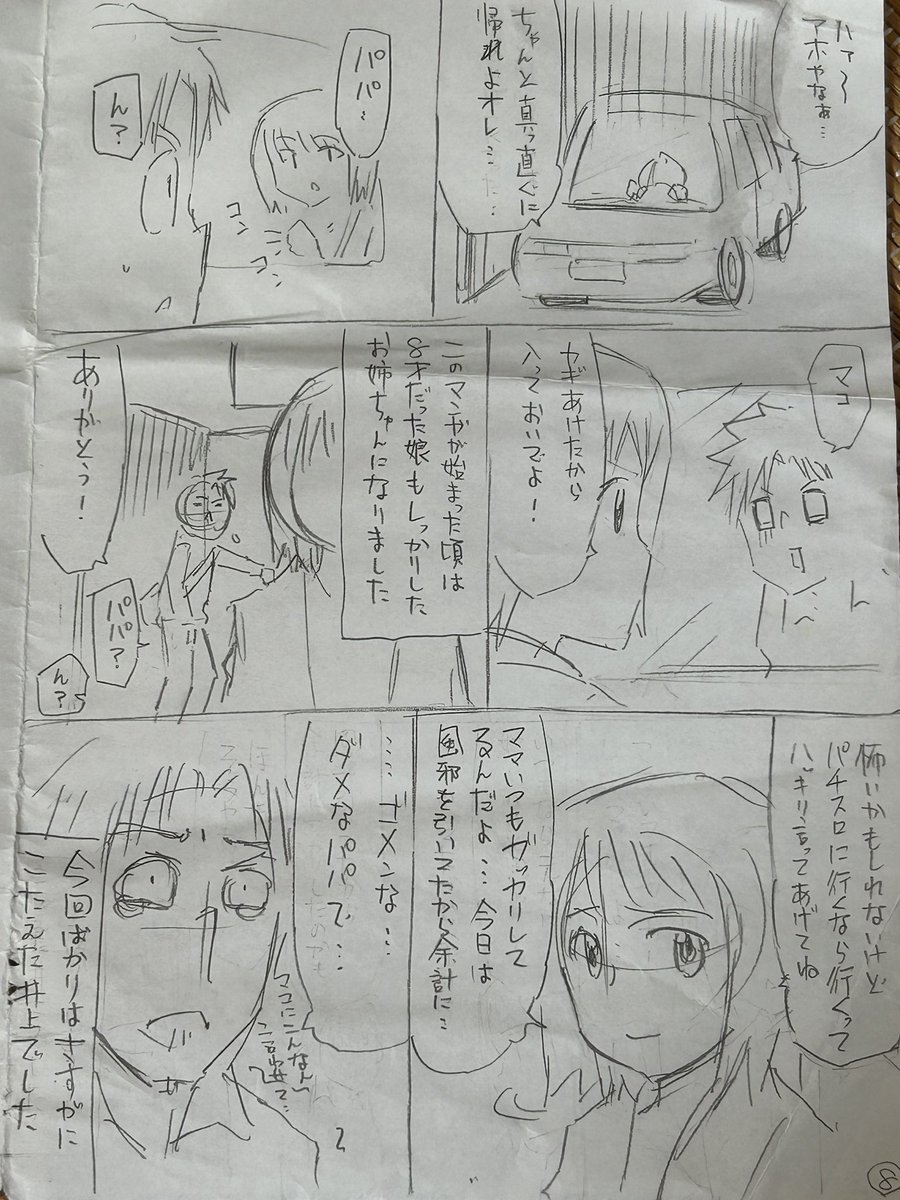 ハァ〜
アホやなぁ…
ちゃんと真っ直ぐに
帰れよオレ…
パパ…
ん?
コン
マコ
カギあけたから
入っておいでよ!
このマンガが始まった頃は
8才だった娘もしっかりした
お姉ちゃんになりました
ありがとう!
パパ?
ん?
怖いかもしれないけど
パチスロに行くなら行くって
ハッキリ言ってあげてね
ママいつもガッカリして
るんだよ…今日は
風邪を引いてたから余計に…
……ゴメンな…
ダメなパパで…
マコにこんなん
言わせて…
今回ばかりはさすがに
こたえた井上でした
8